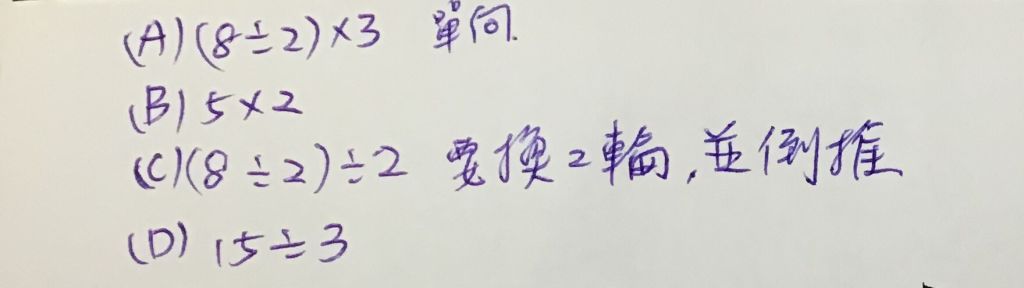 (A)(8÷2)×3 單向.
(B) 5×2
(C)(8÷2)÷2 要換2輪,並倒推
(D) 15÷3